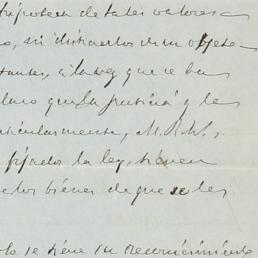 hipoteca de tales valores
o, ni distraerlos de su objeto
tantes, a la vez que se ha
claro que la justicia y la
ticularmente, M. R. W.,
fijados la ley, tienen
e los bienes de que se les
lo se tiene su reconocimiento